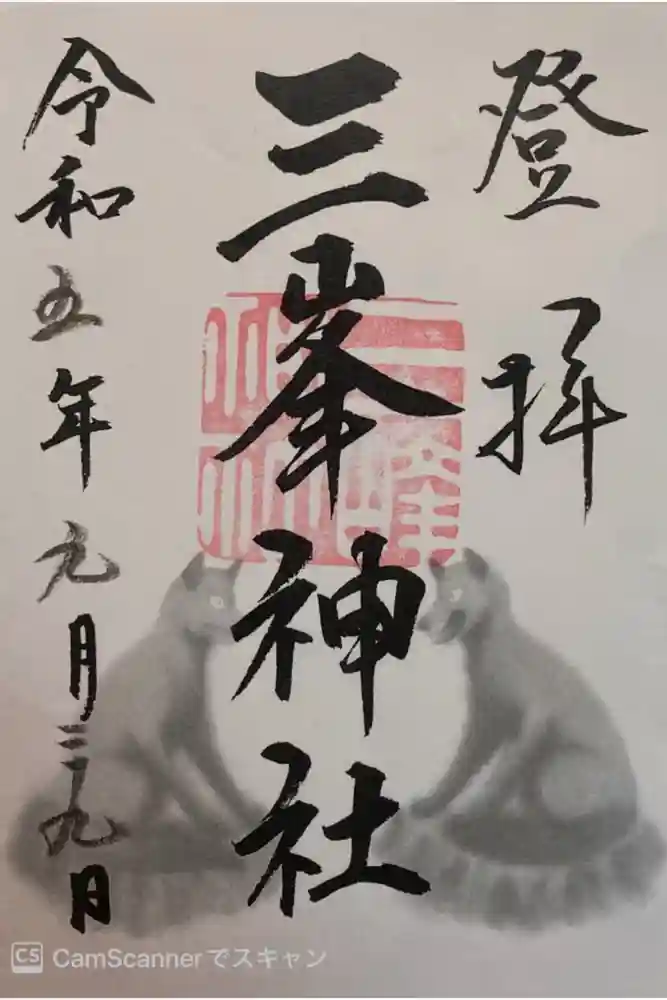 登拝
三峯神社
三峰
神社
令和五年 月 九日
CS CamScannerでスキャン